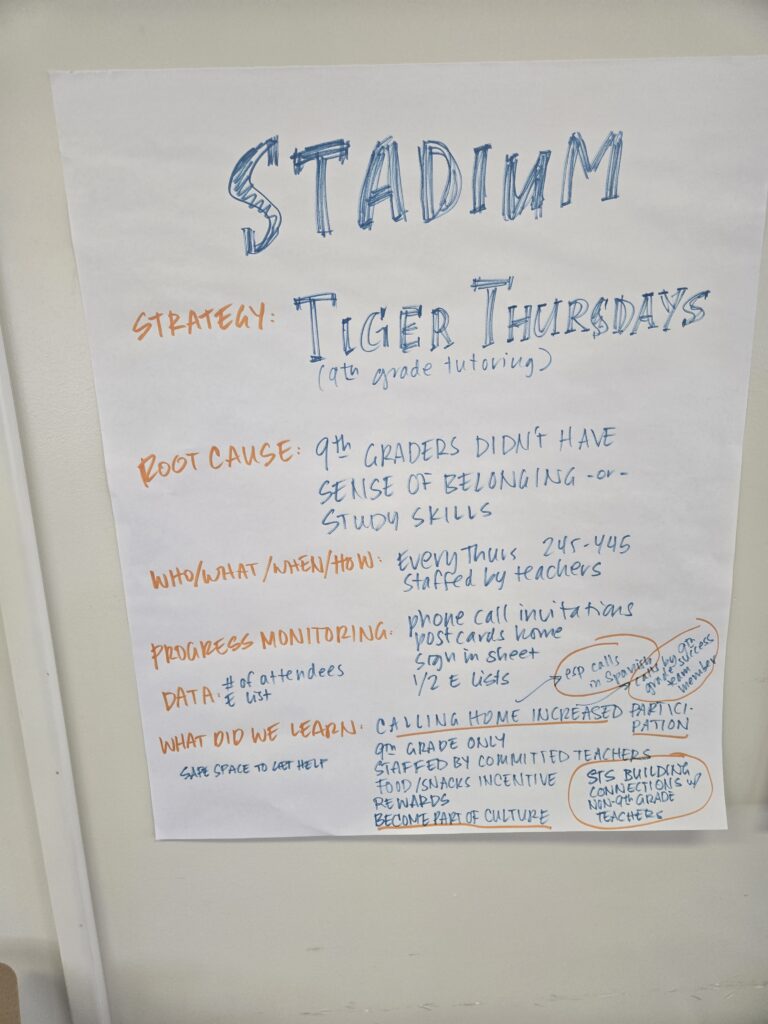 STADIUM
STRATEGY: TIGER THURSDAYS
(9th grade tutoring)
ROOT CAUSE: 9th GRADERS DIDN'T HAVE
SENSE OF BELONGING -or-
STUDY SKILLS
WHO/WHAT/WHEN/HOW: Every Thurs 245-445
staffed by teachers
PROGRESS MONITORING: phone call invitations
postcards home
sign in sheet
1/2 E lists
esp calls
in Spanish
calls by 9th
grade success
team
member
DATA: # of attendees
E list
WHAT DID WE LEARN: CALLING HOME INCREASED PARTICI-
PATION
SAFE SPACE TO GET HELP
9th GRADE ONLY
STAFFED BY COMMITTED TEACHERS
FOOD/SNACKS INCENTIVE
REWARDS
BECOME PART OF CULTURE
STS BUILDING
CONNECTIONS w/
NON-9th GRADE
TEACHERS